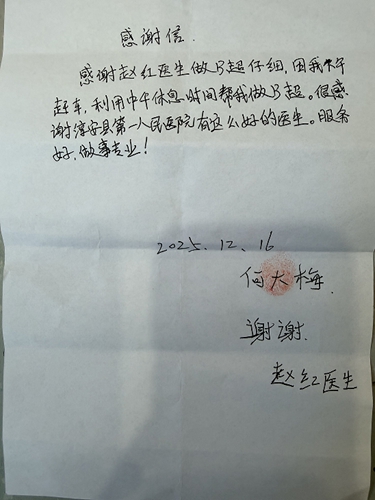 感谢信.
感谢赵红医生做B超仔细,因我下午
赶车,利用中午休息时间帮我做B超。很感
谢淳安县第一人民医院有这么好的医生。服务
好,做事专业!
2025.12.16
何大梅.
谢谢.
赵红医生